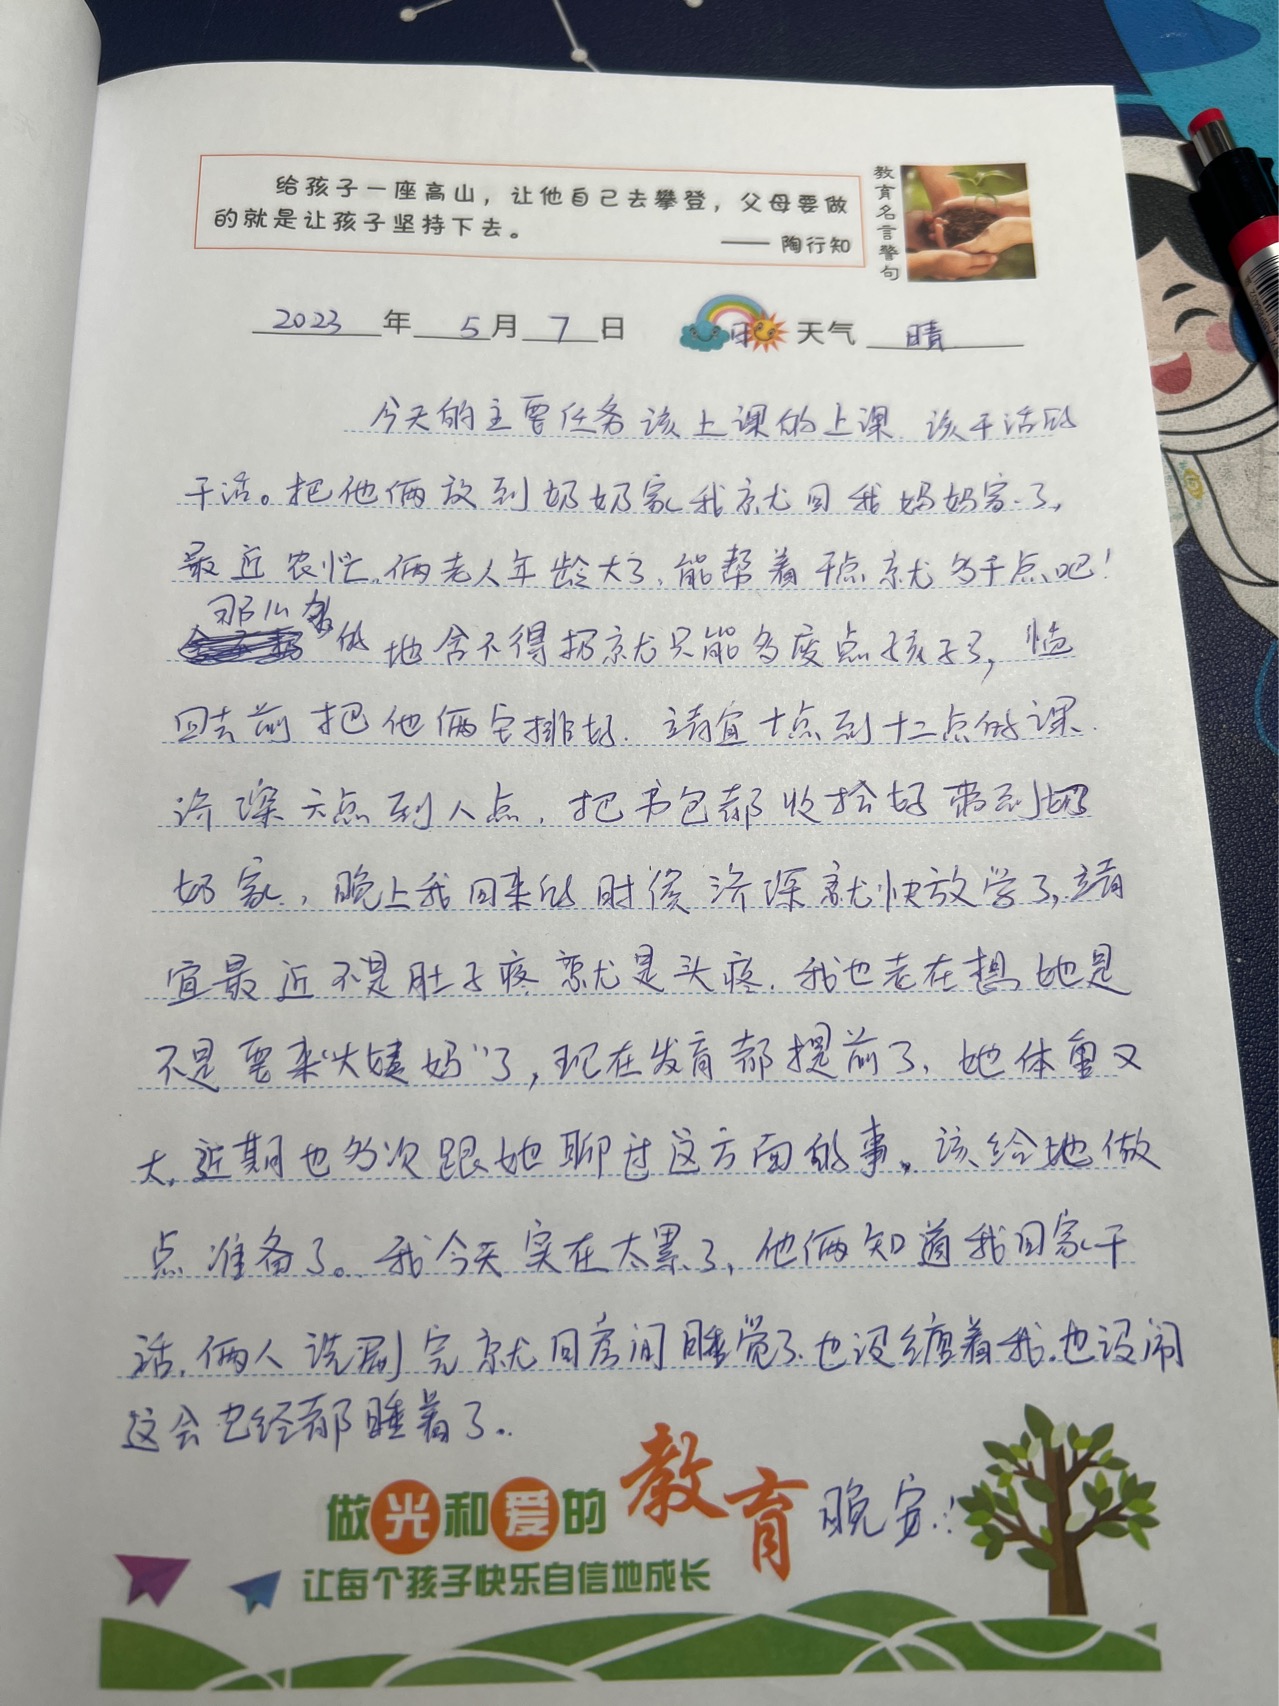 给孩子一座高山，让他自己去攀登，父母要做
的就是让孩子坚持下去。
—— 陶行知
教育名言警句
2023年5月7日 天气 晴
今天的主要任务该上课的上课 该干活的
干活。把他俩放到奶奶家我就回我妈妈家了,
最近农忙,俩老人年龄大了,能帮着干点就多干点吧!
那么多
的地舍不得扔就只能多受点孩子了,
回去前把他俩安排好. 靖宜十点到十二点的课.
济深六点到八点. 把书包都收拾好带到奶
奶家, 晚上我回来的时候济深就快放学了,靖
宜最近不是肚子疼就是头疼. 我也老在想她是
不是要来“大姨妈”了,现在发育都提前了. 她体重又
大,近期也多次跟她聊过这方面的事。该给她做
点准备了。我今天实在太累了,他俩知道我回家干
活,俩人洗刷完就回房间睡觉了.也没缠着我.也没闹
这会已经都睡着了..
做光和爱的教育 晚安!
让每个孩子快乐自信地成长